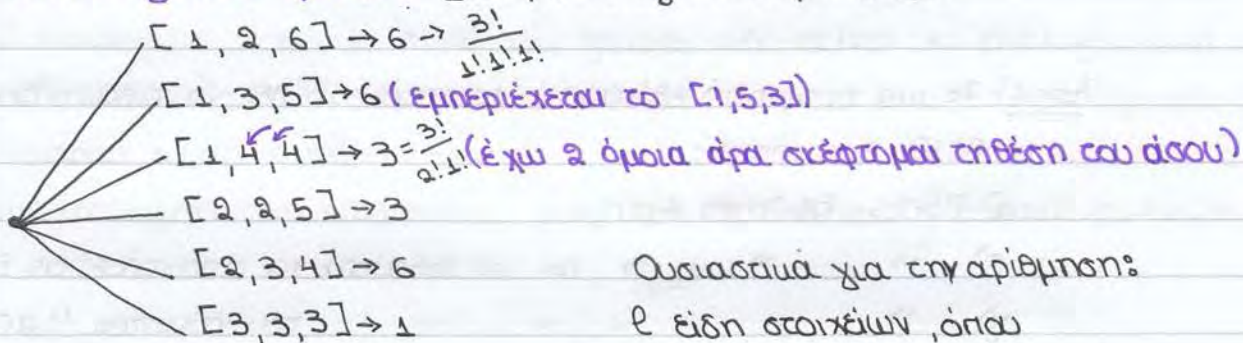 [1, 2, 6] → 6 → 3!/1!1!1!
[1, 3, 5] → 6 (εμπεριέχεται το [1,5,3])
[1, 4, 4] → 3 = 3!/2!1! (έχω 2 όμοια άρα σκέφτομαι τη θέση του άσου)
[2, 2, 5] → 3
[2, 3, 4] → 6 Ουσιαστικά για την αρίθμηση:
[3, 3, 3] → 1 ℓ είδη στοιχείων, όπου